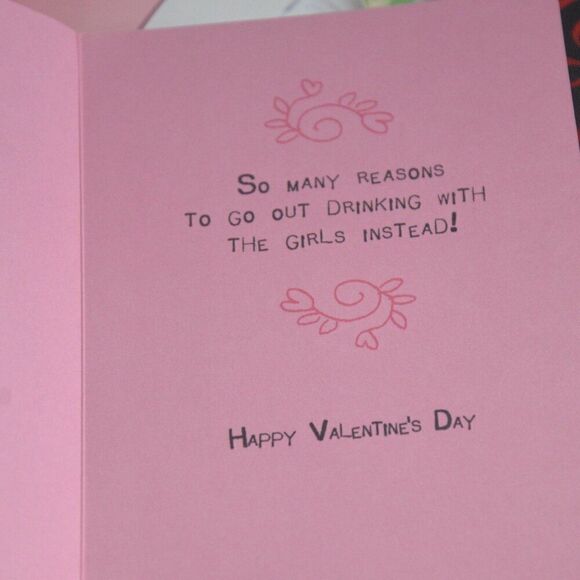 So many reasons
to go out drinking with
the girls instead!
Happy Valentine's Day